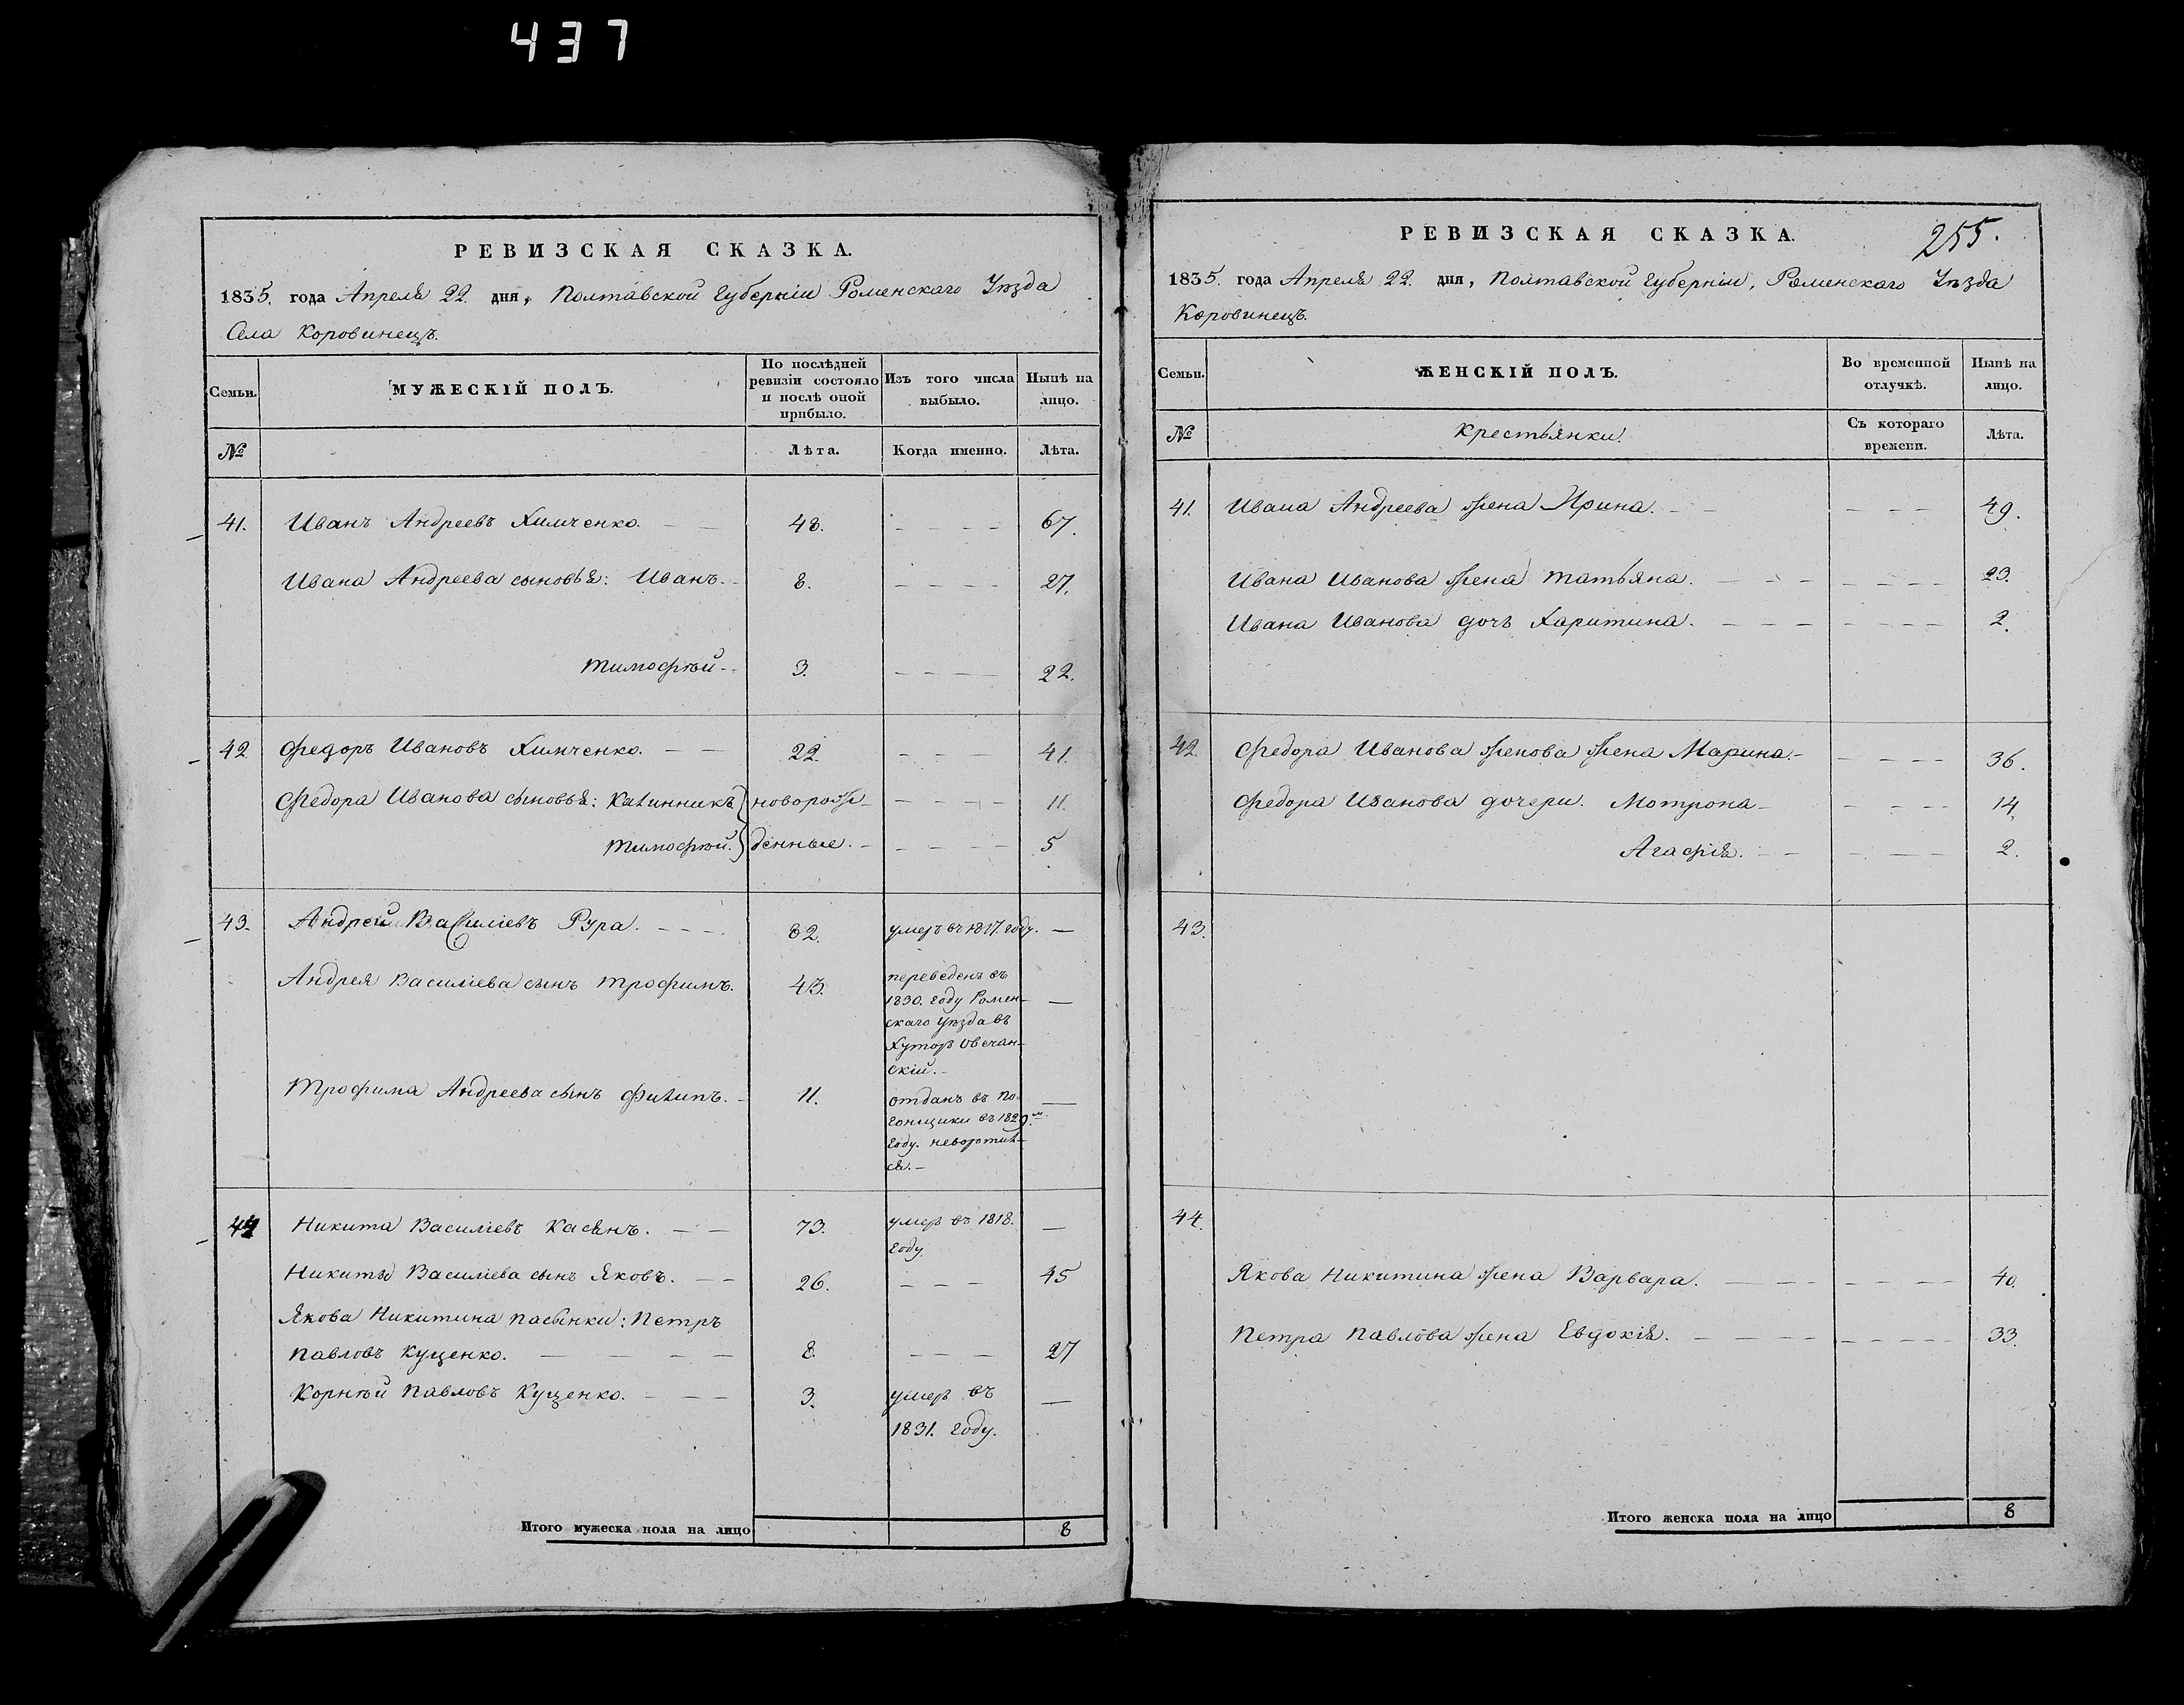 437
РЕВИЗСКАЯ СКАЗКА.
1835. года Апреля 22. дня, Полтавской Губерніи Роменскаго Уѣзда
Села Коровинецъ.
Семьи.
МУЖЕСКІЙ ПОЛЪ.
По послѣдней ревизіи состояло и послѣ оной прибыло.
Изъ того числа выбыло.
Нынѣ на лицо.
№
Лѣта.
Когда именно.
Лѣта.
41. Иванъ Андреевъ Химченко. 48. 67.
Ивана Андреева сыновья: Иванъ. 8. 27.
Тимофѣй 3. 22.
42 Федоръ Ивановъ Химченко. 22. 41.
Федора Иванова сыновья: Калинникъ } новорож- 11.
Тимофѣй. } денные. 5
43. Андрей Василіевъ Рура. 82. умеръ въ 1817. году. —
Андрея Василіева сынъ Трофимъ. 43. переведенъ въ —
1830. году Ромен-
скаго Уѣзда въ
Хуторъ Овечан-
скій.
Трофима Андреева сынъ Филипъ. 11. отданъ въ По- —
гонщики въ 1829.м
году. неворотил-
ся.
44 Никита Василіевъ Касянъ. 73. умеръ въ 1818. —
году.
Никиты Василіева сынъ Яковъ. 26. 45
Якова Никитина пасынки: Петръ
Павловъ Куценко. 8. 27
Корнѣй Павловъ Куценко. 3. умеръ въ —
1831. году.
Итого мужеска пола на лицо 8
РЕВИЗСКАЯ СКАЗКА.
255.
1835. года Апреля 22. дня, Полтавской Губерніи, Роменскаго Уѣзда
Коровинецъ.
Семьи.
ЖЕНСКІЙ ПОЛЪ.
Во временной отлучкѣ.
Нынѣ на лицо.
№
Крестьянки.
Съ котораго времени.
Лѣта.
41. Ивана Андреева жена Ирина. 49.
Ивана Иванова жена Татьяна. 23.
Ивана Иванова дочь Харитина. 2.
42. Федора Иванова женова жена Марина. 36.
Федора Иванова дочери. Мотрона 14,
Агафія. 2.
43.
44.
Якова Никитина жена Варвара. 40.
Петра Павлова жена Евдокія. 33.
Итого женска пола на лицо 8